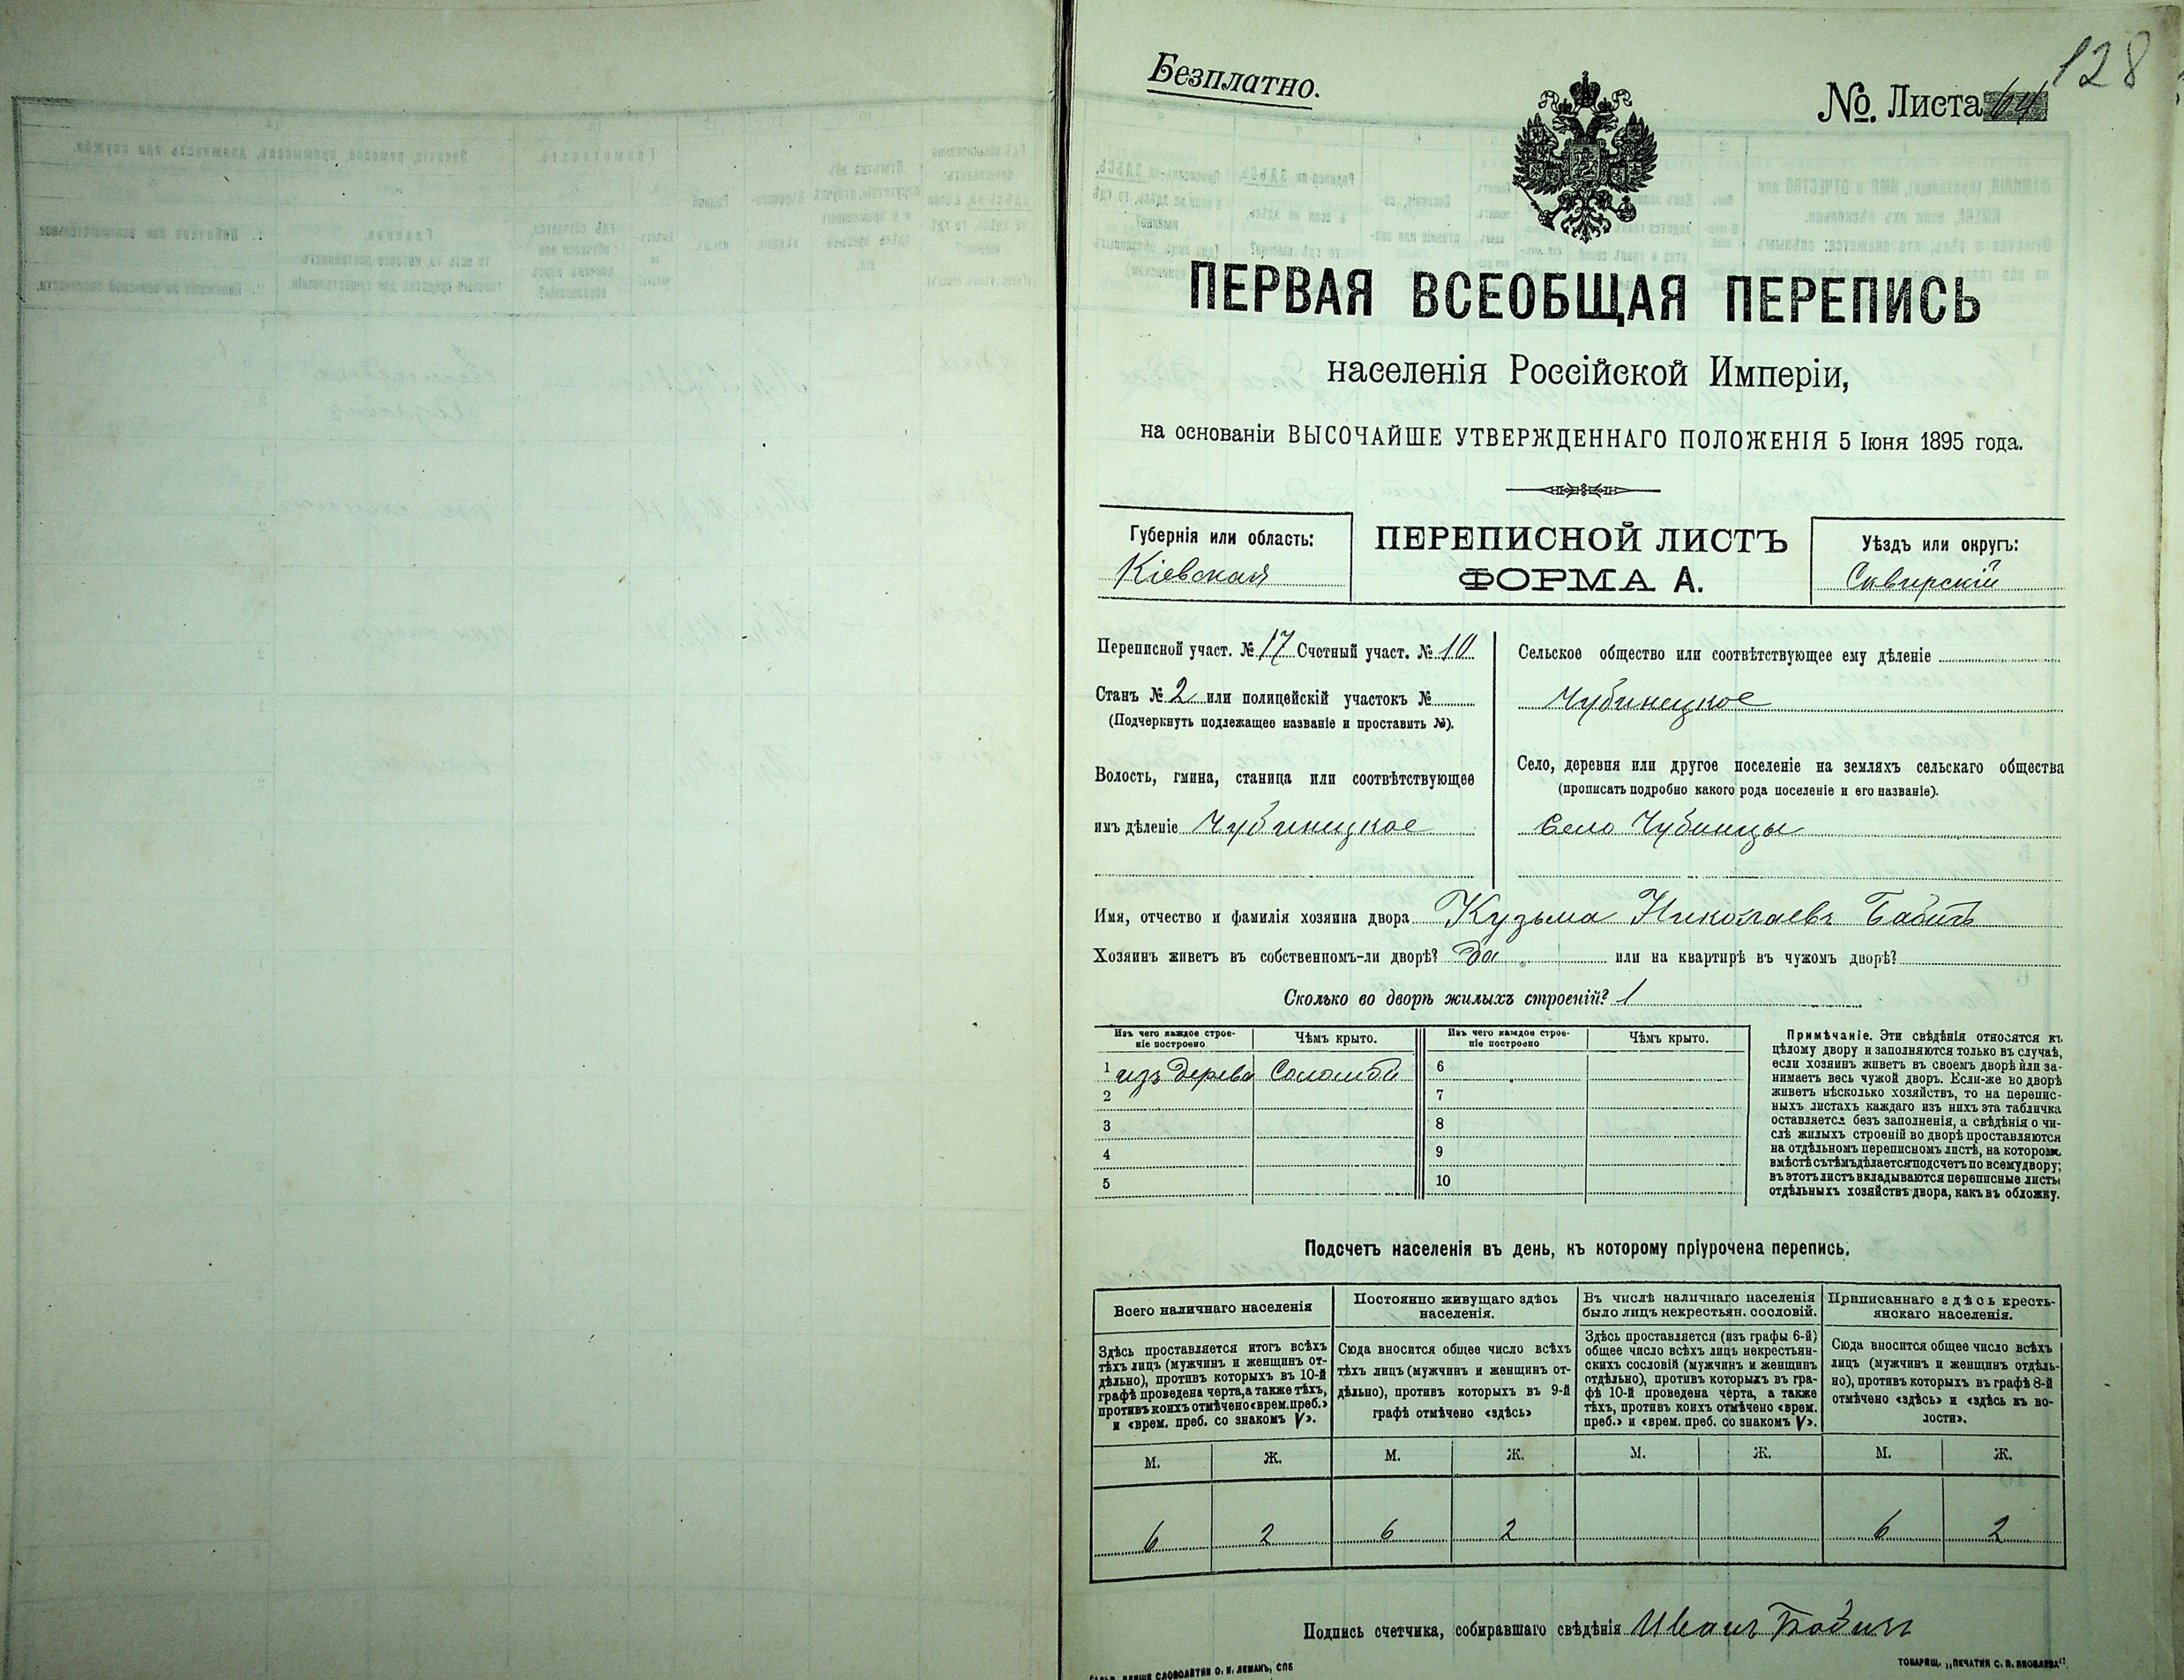 Безплатно.
128
№. Листа 64
ПЕРВАЯ ВСЕОБЩАЯ ПЕРЕПИСЬ
населенія Россійской Имперіи,
на основаніи ВЫСОЧАЙШЕ УТВЕРЖДЕННАГО ПОЛОЖЕНІЯ 5 Іюня 1895 года.
Губернія или область:
Кіевская
ПЕРЕПИСНОЙ ЛИСТЪ
ФОРМА А.
Уѣздъ или округъ:
Сквирскій
Переписной участ. № 17 Счетный участ. № 10
Станъ № 2 или полицейскій участокъ №
(Подчеркнуть подлежащее названіе и проставить №).
Волость, гмина, станица или соотвѣтствующее
имъ дѣленіе Чубинецкое
Сельское общество или соотвѣтствующее ему дѣленіе
Чубинецкое
Село, деревня или другое поселеніе на земляхъ сельскаго общества
(прописать подробно какого рода поселеніе и его названіе).
Село Чубинцы
Имя, отчество и фамилія хозяина двора Кузьма Николаевъ
Хозяинъ живетъ въ собственномъ-ли дворѣ? Да или на квартирѣ въ чужомъ дворѣ?
Сколько во дворѣ жилыхъ строеній? 1
Изъ чего каждое строе-
ніе построено
Чѣмъ крыто.
Изъ чего каждое строе-
ніе построено
Чѣмъ крыто.
1 изъ дерева Соломой 6
2 7
3 8
4 9
5 10
Примѣчаніе. Эти свѣдѣнія относятся къ
цѣлому двору и заполняются только въ случаѣ,
если хозяинъ живетъ въ своемъ дворѣ или за-
нимаетъ весь чужой дворъ. Если-же во дворѣ
живетъ нѣсколько хозяйствъ, то на перепис-
ныхъ листахъ каждаго изъ нихъ эта табличка
оставляется безъ заполненія, а свѣдѣнія о чи-
слѣ жилыхъ строеній во дворѣ проставляются
на отдѣльномъ переписномъ листѣ, на которомъ
вмѣстѣ съ тѣмъ дѣлается подсчетъ по всему двору;
въ этотъ листъ вкладываются переписные листы
отдѣльныхъ хозяйствъ двора, какъ въ обложку.
Подсчетъ населенія въ день, къ которому пріурочена перепись.
Всего наличнаго населенія
Здѣсь проставляется итогъ всѣхъ
тѣхъ лицъ (мужчинъ и женщинъ от-
дѣльно), противъ которыхъ въ 10-й
графѣ проведена черта, а также тѣхъ,
противъ коихъ отмѣчено «врем. преб.»
и «врем. преб. со знакомъ V».
Постоянно живущаго здѣсь
населенія.
Сюда вносится общее число всѣхъ
тѣхъ лицъ (мужчинъ и женщинъ от-
дѣльно), противъ которыхъ въ 9-й
графѣ отмѣчено «здѣсь»
Въ числѣ наличнаго населенія
было лицъ некрестьян. сословій.
Здѣсь проставляется (изъ графы 6-й)
общее число всѣхъ лицъ некрестьян-
скихъ сословій (мужчинъ и женщинъ
отдѣльно), противъ которыхъ въ гра-
фѣ 10-й проведена черта, а также
тѣхъ, противъ коихъ отмѣчено «врем.
преб.» и «врем. преб. со знакомъ V».
Приписаннаго здѣсь кресть-
янскаго населенія.
Сюда вносится общее число всѣхъ
лицъ (мужчинъ и женщинъ отдѣль-
но), противъ которыхъ въ графѣ 8-й
отмѣчено «здѣсь» и «здѣсь къ во-
лости».
М. Ж. М. Ж. М. Ж. М. Ж.
6 2 6 2 6 2
Подпись счетчика, собиравшаго свѣдѣнія Иванъ
СЛОВОЛИТНИ О. И. ЛЕМАНЪ, СПБ
ТОВАРИЩ. „ПЕЧАТНЯ С. П. ЯКОВЛЕВА“